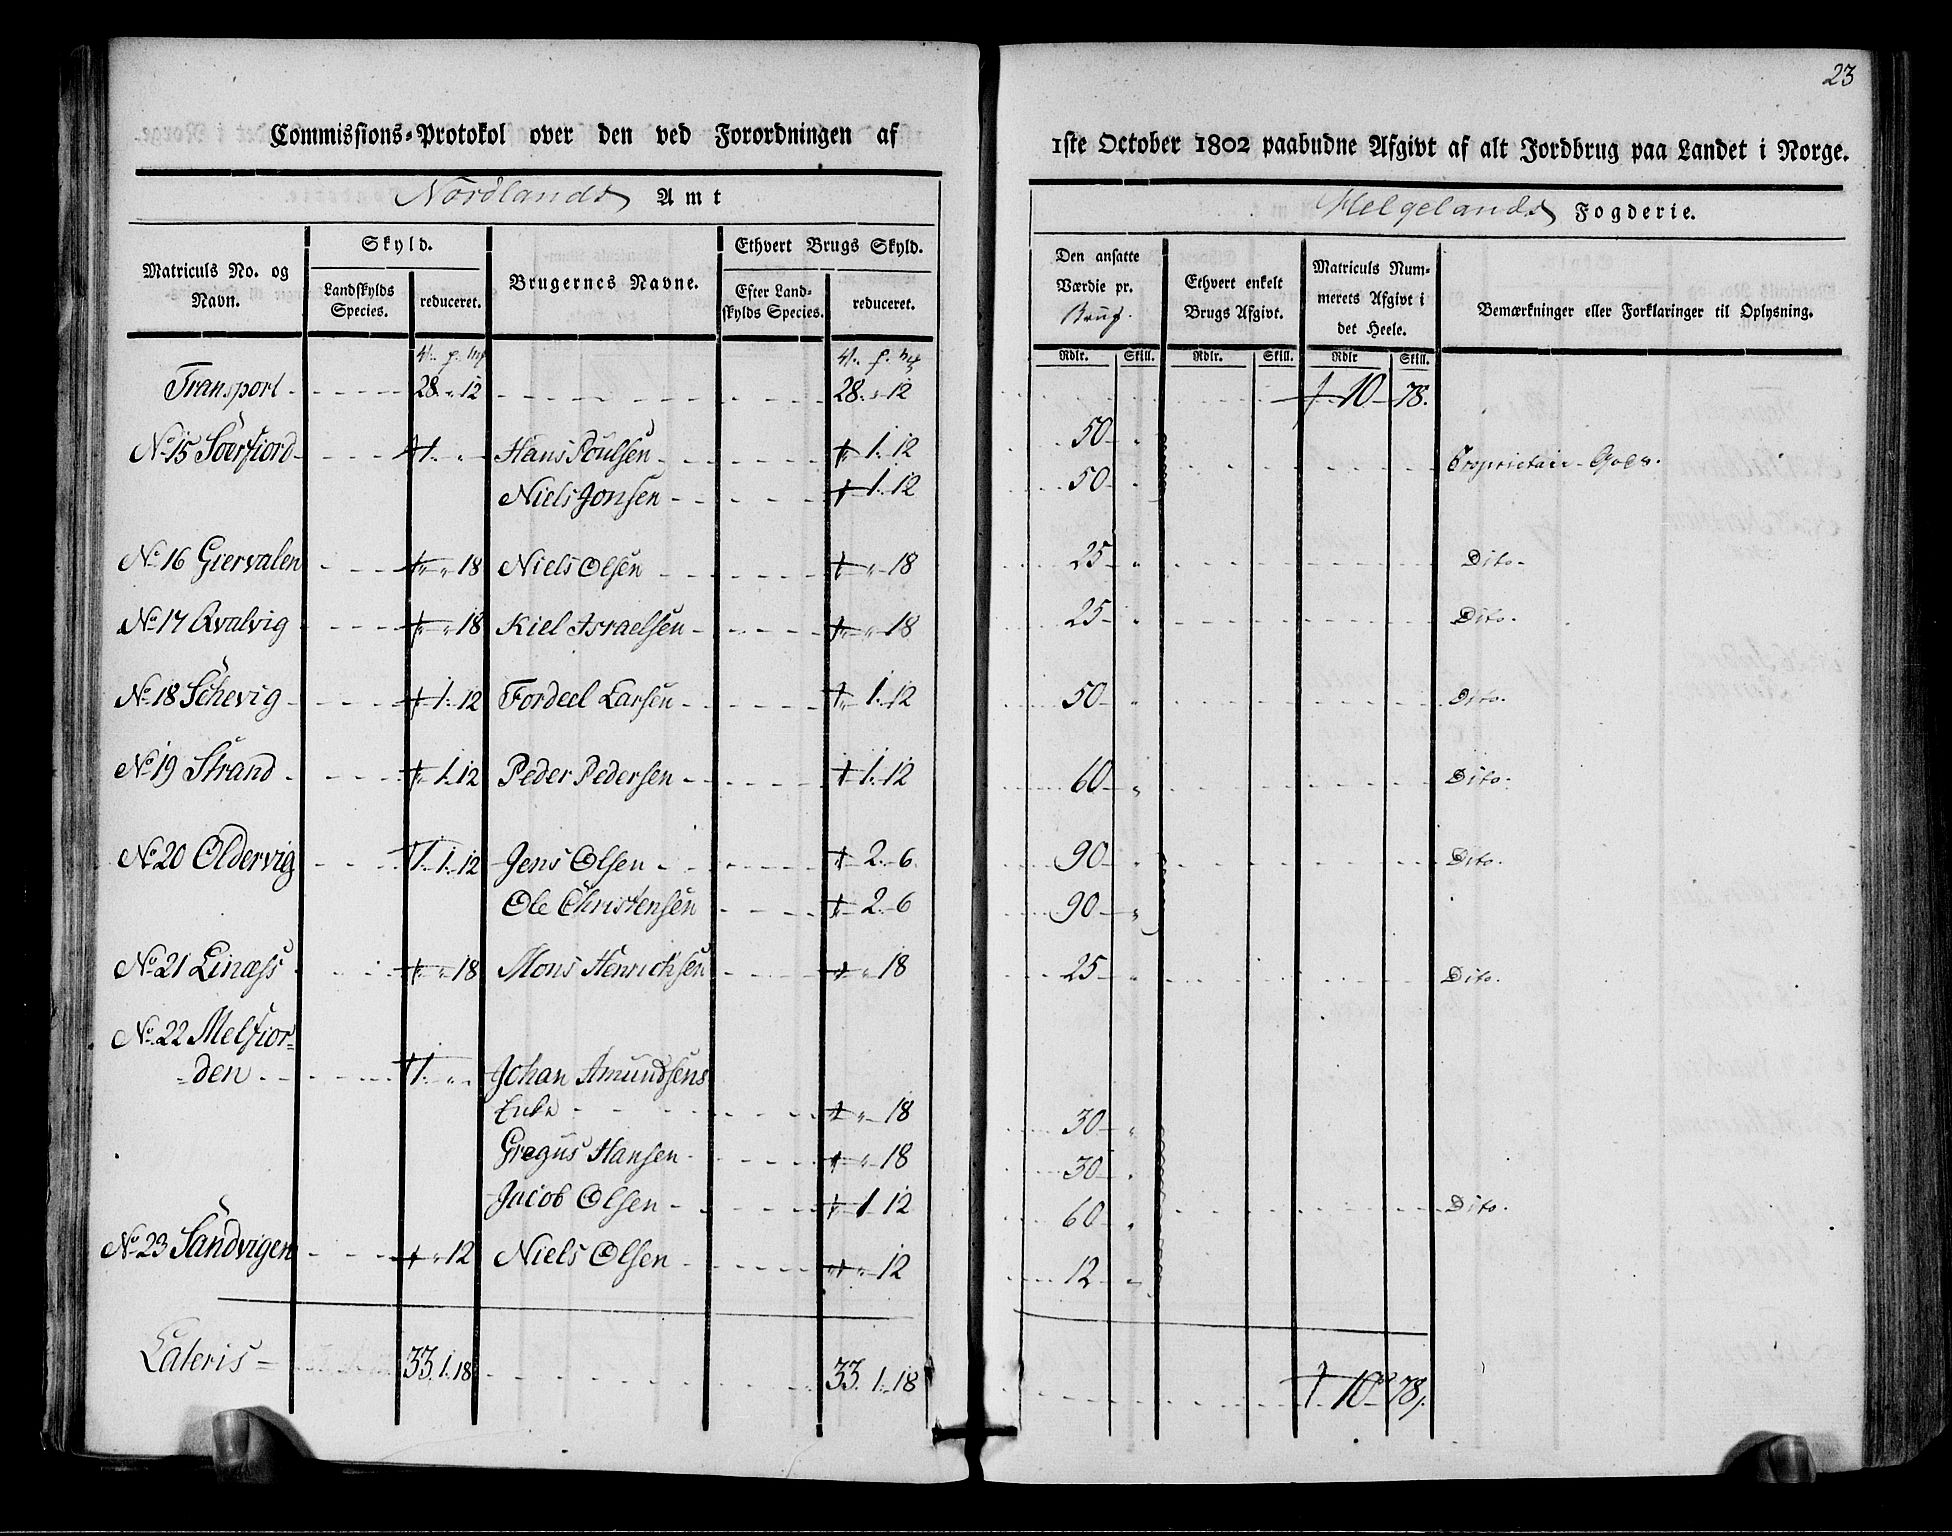 23
Commissions-Protokol over den ved Forordningen af
1ste October 1802 paabudne Afgivt af alt Jordbrug paa Landet i Norge.
Nordlands Amt
Helgelands Fogderie.
Matriculs No. og Navn.
Skyld.
Landskylds Species.
reduceret.
Brugernes Navne.
Ethvert Brugs Skyld.
Efter Landskylds Species.
reduceret.
Den ansatte Værdie pr. Brug.
Ethvert enkelt Brugs Afgivt.
Matriculs Nummerets Afgivt i det Heele.
Bemærkninger eller Forklaringer til Oplysning.
Rdlr. Skill. Rdlr. Skill. Rdlr Skill.
Transport 28 " 12 28 " 12 10 78.
No 15 Soerfiord 1 " Hans Poulsen 1. 12 50 " Proprietair Gods.
Niels Jonsen 1. 12 50 "
No 16 Giervalen " 18 Niels Olsen " 18 25 " Dito
No 17 Qvalvig " 18 Kiel Israelsen " 18 25 " Dito.
No 18 Schevig 1. 12 Fordeel Larsen 1. 12 50 " Dito.
No 19 Strand 1. 12 Peder Pedersen 1. 12 60 " Dito.
No 20 Oldervig 1. 1. 12 Jens Olsen 2. 6. 90 " Dito.
Ole Christensen 2. 6 90 "
No 21 Linæss " 18 Mons Henrichsen " 18 25 " Dito.
No 22 Melfior-
-den 1. " Johan Amundsens
Enke " 18 30 "
Gregus Hansen " 18 30 "
Jacob Olsen 1 12 60 " Dito.
No 23 Sandvigen " 12 Niels Olsen " 12 12 "
Lateris 33. 1. 18 33. 1. 18 10 78.